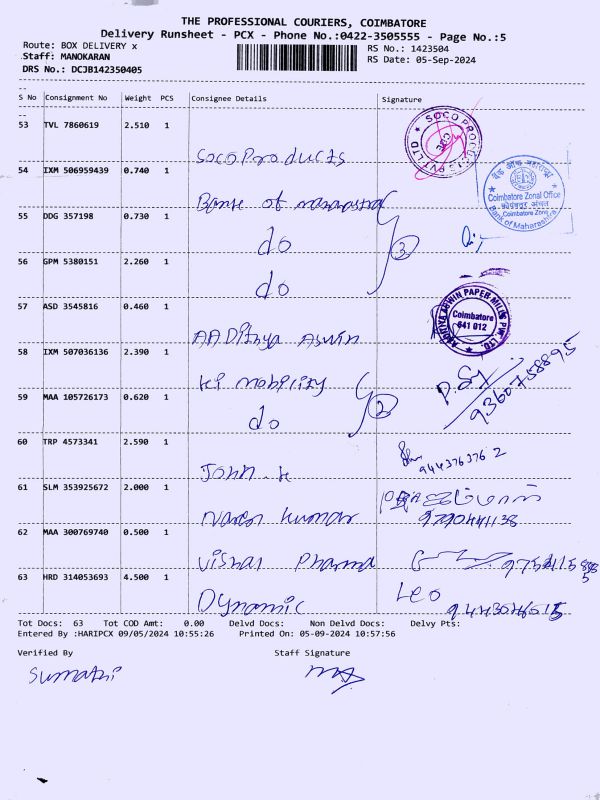 THE PROFESSIONAL COURIERS, COIMBATORE
Delivery Runsheet - PCX - Phone No.:0422-3505555 - Page No.:5
Route: BOX DELIVERY x
RS No.: 1423504
Staff: MANOKARAN
RS Date: 05-Sep-2024
DRS No.: DCJB142350405
S No Consignment No Weight PCS Consignee Details Signature
53 TVL 7860619 2.510 1
SOCO PROCUCTS PVT LTD
CBE
Soco Products
54 IXM 506959439 0.740 1
बैंक ऑफ महाराष्ट्र
Coimbatore Zonal Office
कोयंबतूर अंचल
Coimbatore Zone
Bank of Maharashtra
Bank of maharastra
55 DDG 357198 0.730 1
do
3
56 GPM 5380151 2.260 1
do
57 ASD 3545816 0.460 1
AADITHYA ASWIN PAPER MILLS PVT. LTD.
Coimbatore
641 012
AADithya Aswin
58 IXM 507036136 2.390 1
ki mobility
9360758895
59 MAA 105726173 0.620 1
do
2
60 TRP 4573341 2.590 1
John. k
9443763762
61 SLM 353925672 2.000 1
Naresh kumar
62 MAA 300769740 0.500 1
Vishal Pharma
63 HRD 314053693 4.500 1
Dynamic
Leo
Tot Docs: 63 Tot COD Amt: 0.00 Delvd Docs: Non Delvd Docs: Delvy Pts:
Entered By :HARIPCX 09/05/2024 10:55:26 Printed On: 05-09-2024 10:57:56
Verified By Staff Signature
Sumathi